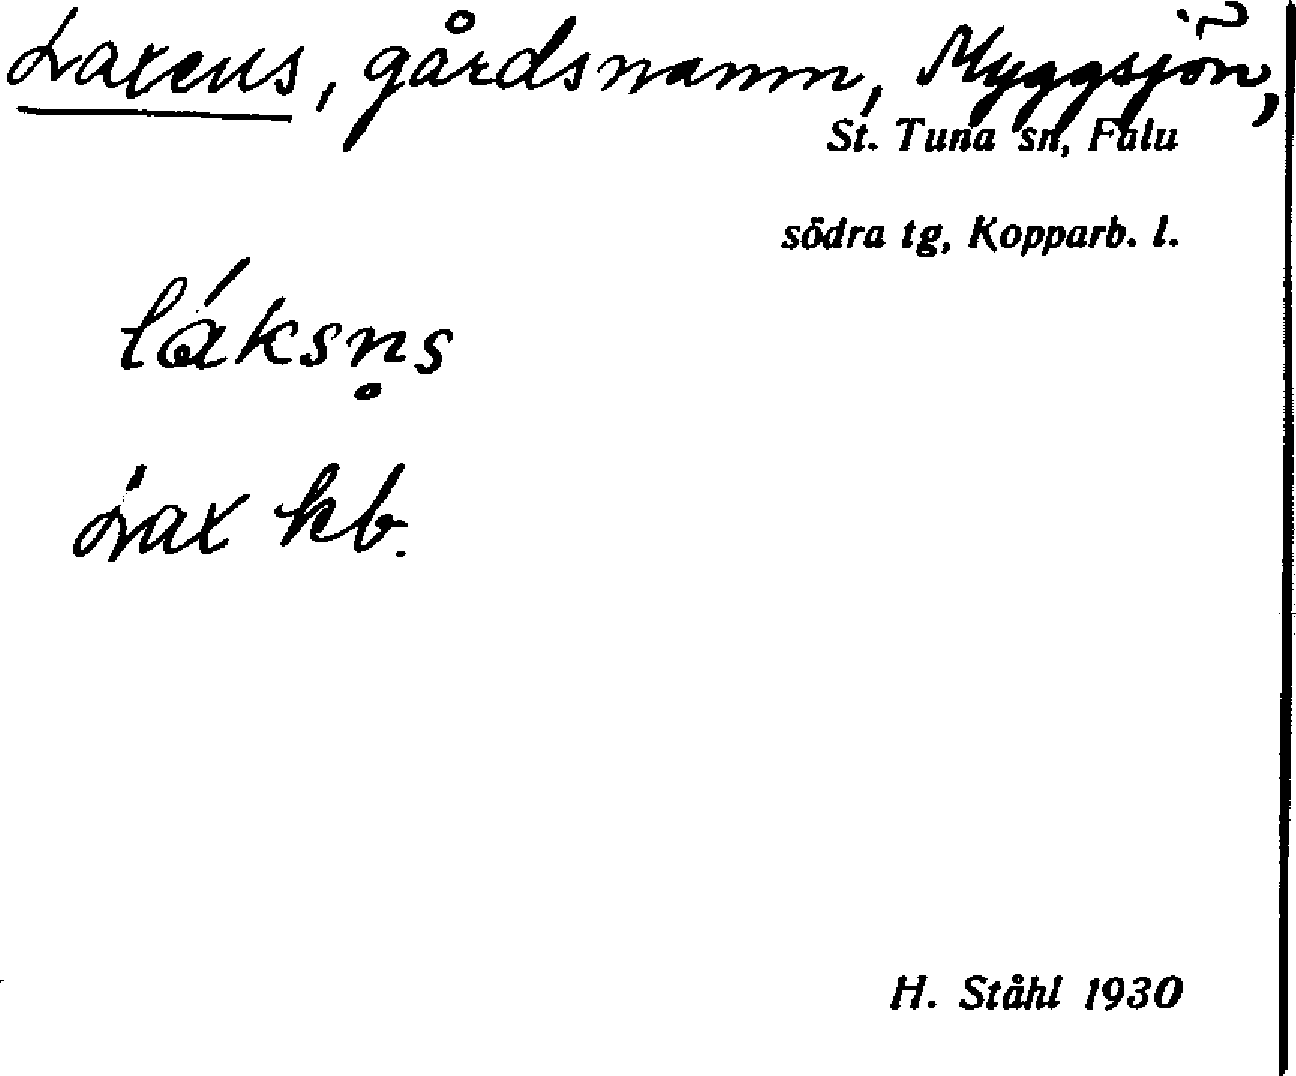 Laxens, gårdsnamn, Myggsjön,
St. Tuna sn, Falu
södra tg, Kopparb. l.
láksn̥s
Lax kb.
H. Ståhl 1930